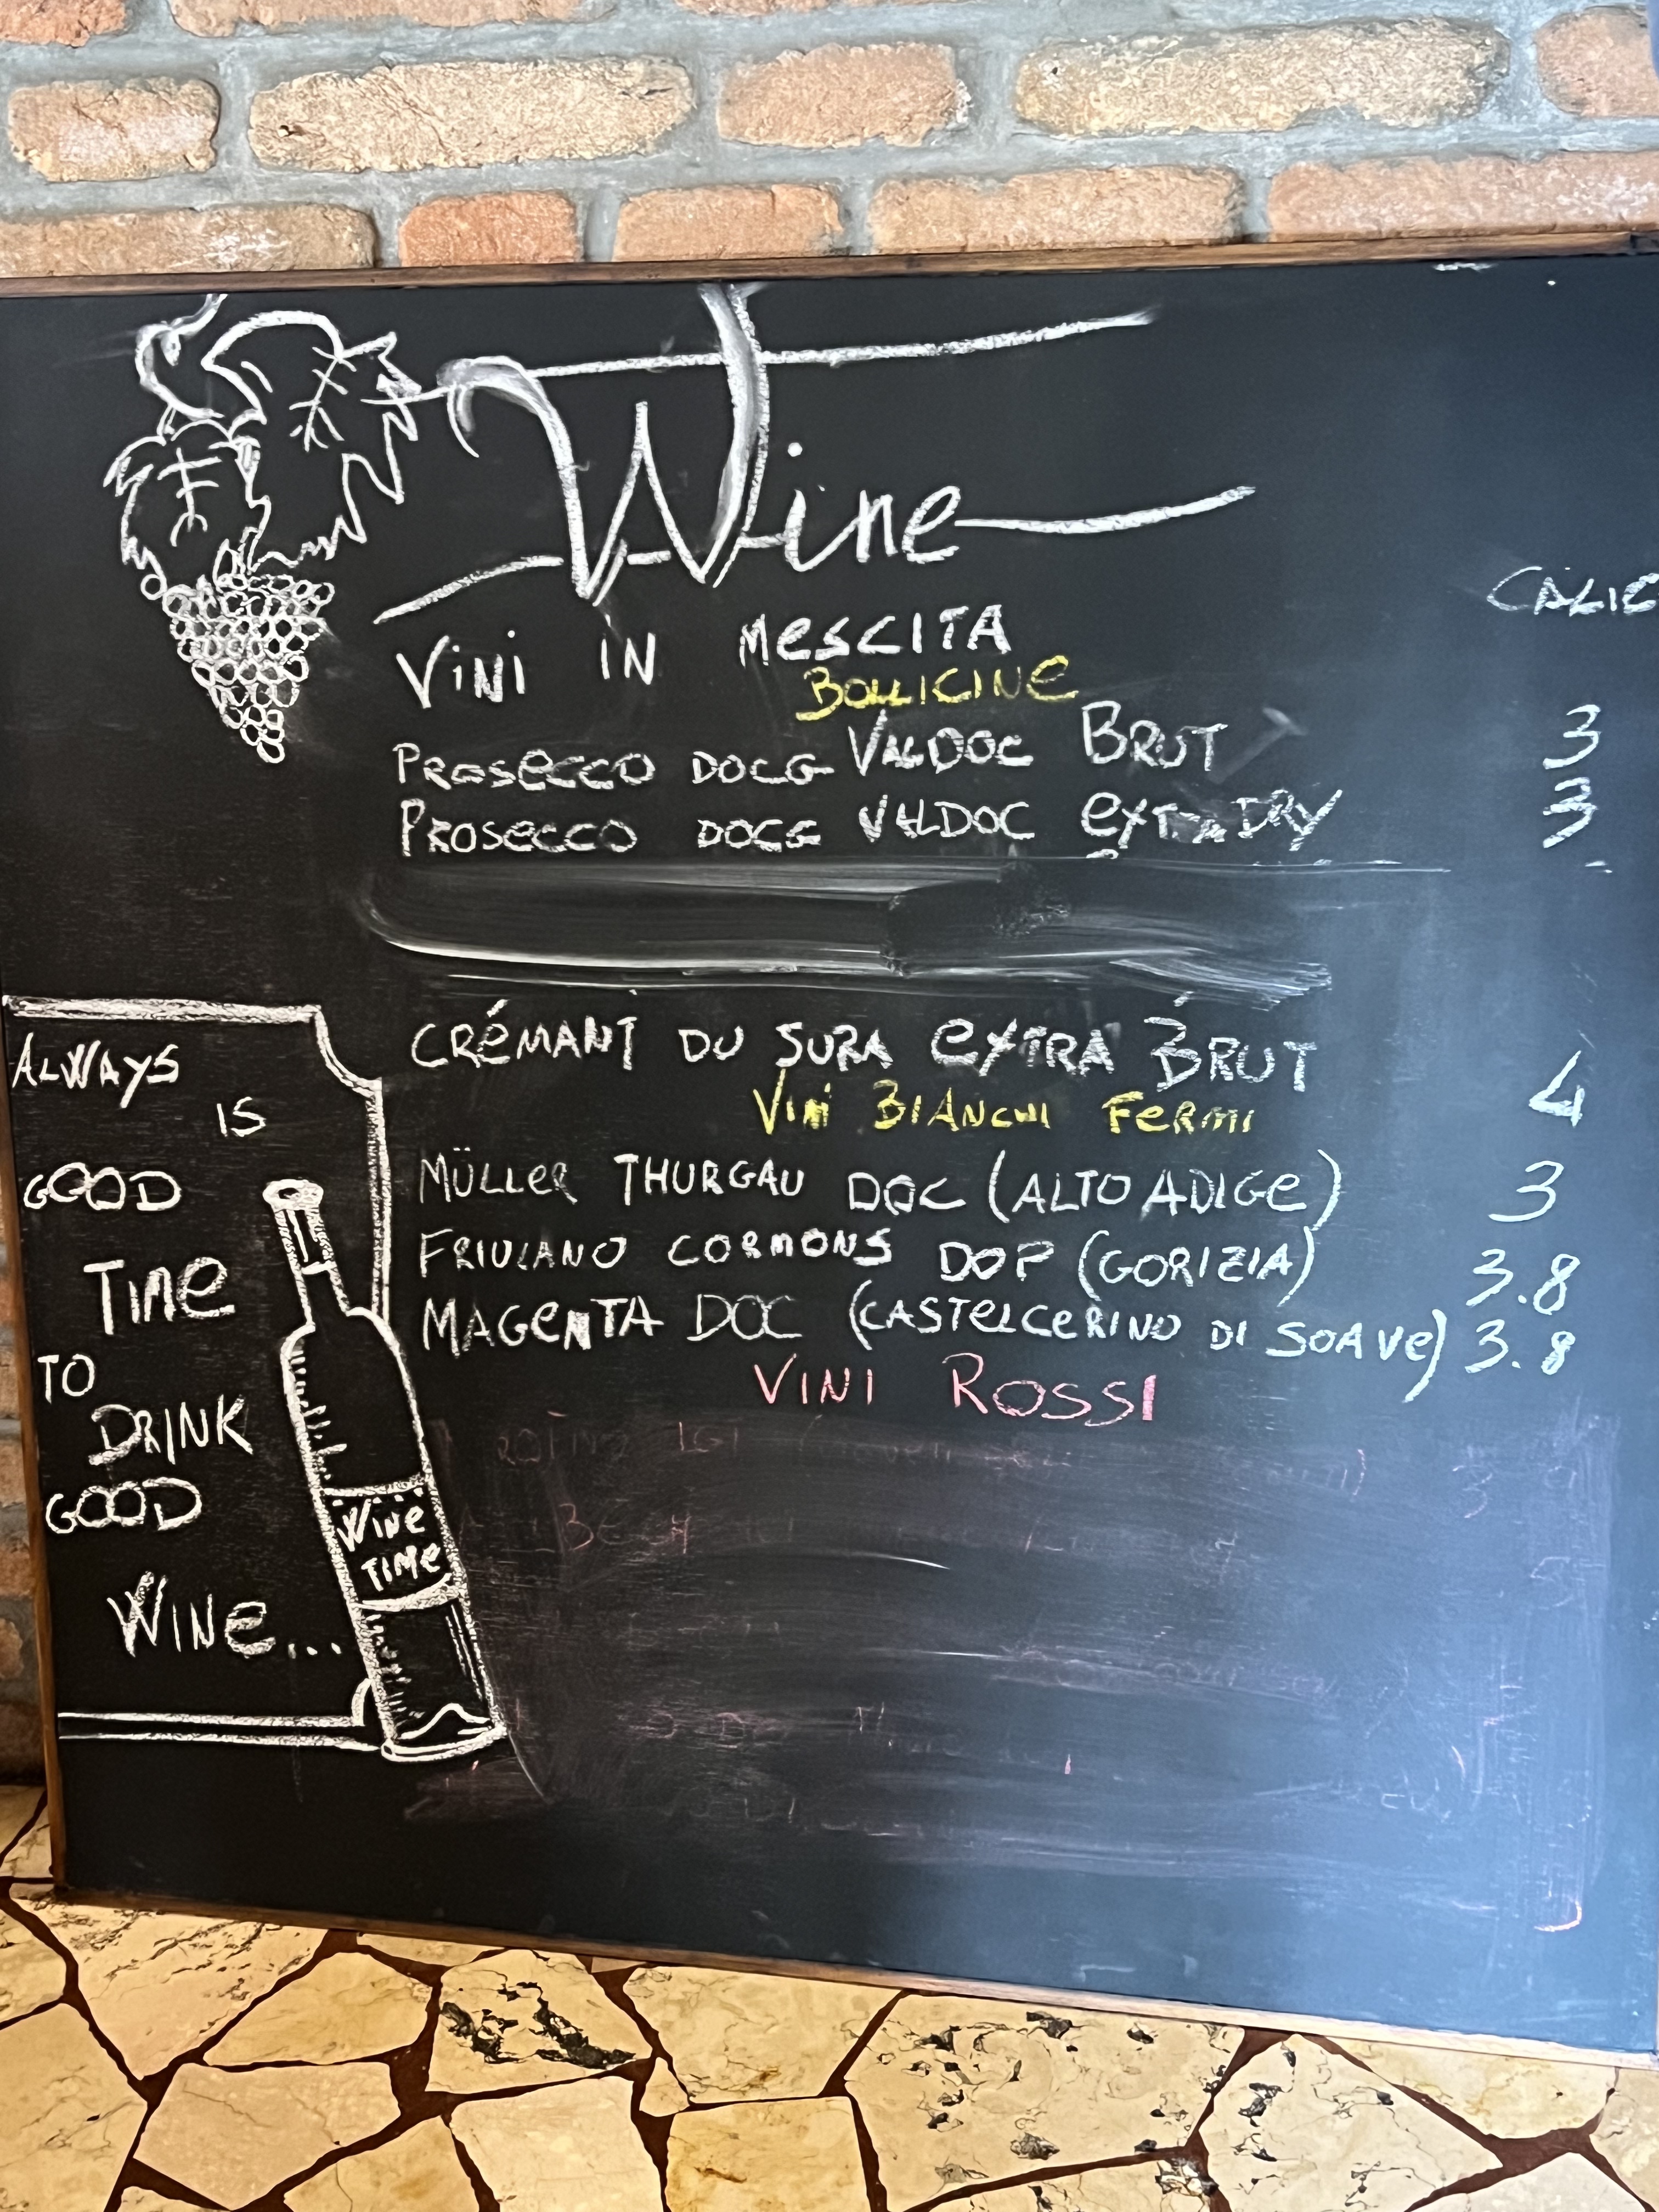 Wine
CALIC
VINI IN MESCITA
BOLLICINE
PROSECCO DOCG VALDOC BRUT 3
PROSECCO DOCG VALDOC EXTRA DRY 3
CRÉMANT DU JURA EXTRA BRUT 4
VINI BIANCHI FERMI
MÜLLER THURGAU DOC (ALTO ADIGE) 3
FRIULANO CORMONS DOP (GORIZIA) 3.8
MAGENTA DOC (CASTELCERINO DI SOAVE) 3.8
VINI ROSSI
ALWAYS
IS
GOOD
TIME
TO
DRINK
GOOD
WINE...
WINE
TIME